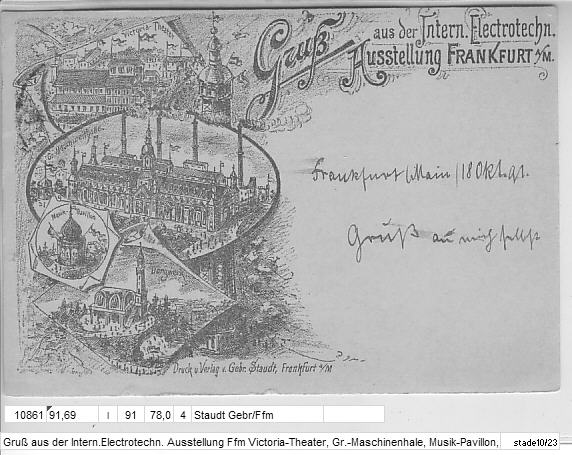 Gruß aus der Intern. Electrotechn.
Ausstellung FRANKFURT a/M.
Victoria Theater
Musik-Pavillon
Bergwerk
Frankfurt /Main /18 Okt. 91.
Gruß an mich selbst
Druck u. Verlag v. Gebr. Staudt, Frankfurt a/M
10861 91,69 I 91 78,0 4 Staudt Gebr/Ffm
Gruß aus der Intern.Electrotechn. Ausstellung Ffm Victoria-Theater, Gr.-Maschinenhale, Musik-Pavillon, stade10/23